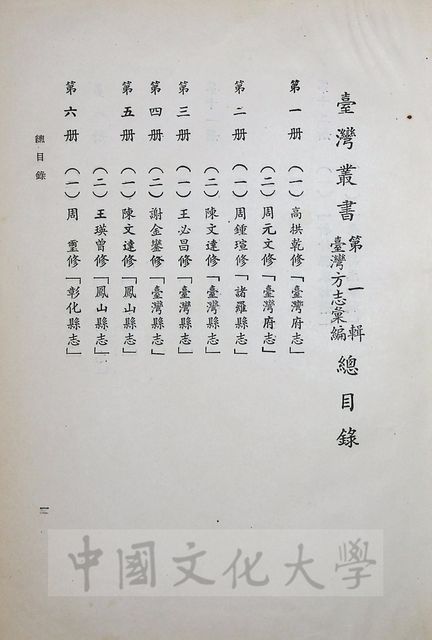 臺灣叢書第一輯臺灣方志彙編總目錄
第一册 (一) 高拱乾修「臺灣府志」
(二) 周元文修「臺灣府志」
第二册 (一) 周鍾瑄修「諸羅縣志」
(二) 陳文達修「臺灣縣志」
第三册 (一) 王必昌修「臺灣縣志」
第四册 (二) 謝金鑾修「臺灣縣志」
第五册 (一) 陳文達修「鳳山縣志」
(二) 王瑛曾修「鳳山縣志」
第六册 (一) 周璽修「彰化縣志」
總目錄
一
中國文化大學